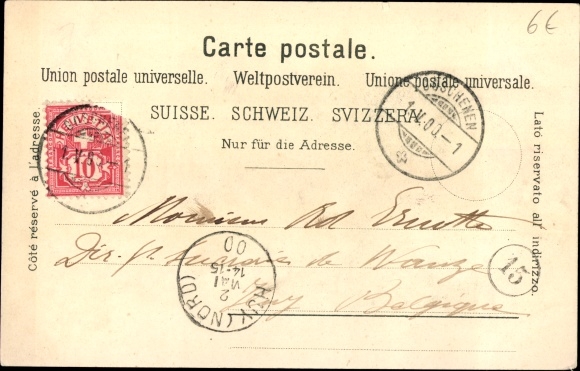 6€
Carte postale.
Union postale universelle. Weltpostverein. Unione postale universale.
SUISSE. SCHWEIZ. SVIZZERA.
Nur für die Adresse.
Côté réservé à l'adresse.
Lato riservato all' indirizzo.
HELVETIA
10
GÖSCHENEN
1.V.00.-1
Monsieur
Dir. de Wanze
Huy Belgique
HUY (NORD)
2
MAI
14-15
00
15